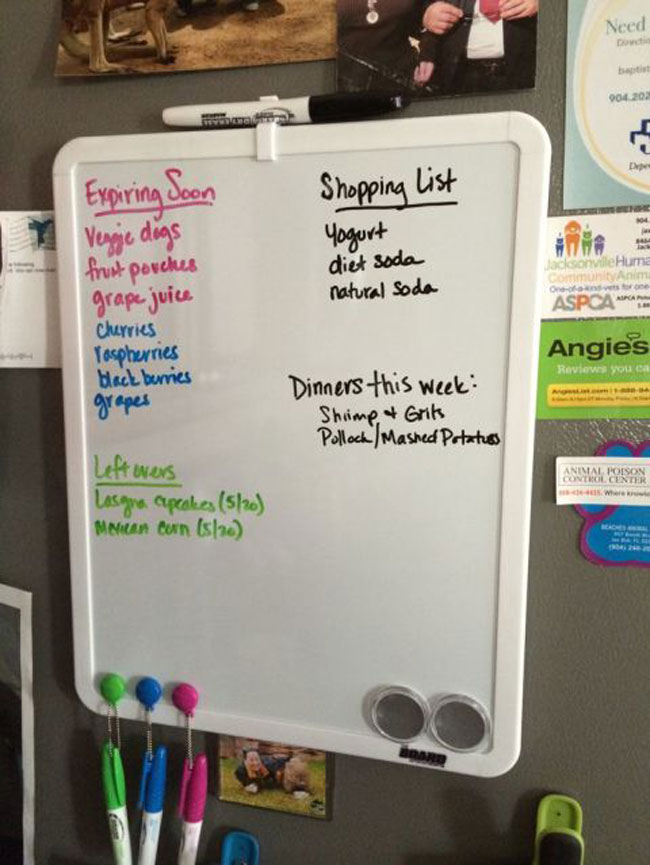 Expiring Soon
Veggie dogs
fruit pouches
grape juice
cherries
raspberries
blackberries
grapes
Leftovers
Lasgna cupcakes (5/30)
Mexican corn (5/30)
Shopping List
Yogurt
diet soda
natural soda
Dinners this week:
Shrimp & Grits
Pollock/Mashed Potatoes
BOARD
Need
Directi
baptis
904.202
Depe
Jacksonville Huma
Community Anima
One-of-a-kind-vets for one
ASPCA
Angie's
Reviews you ca
AngiesList.com
ANIMAL POISON
CONTROL CENTER
Where knowle
BEACHES ANIMAL